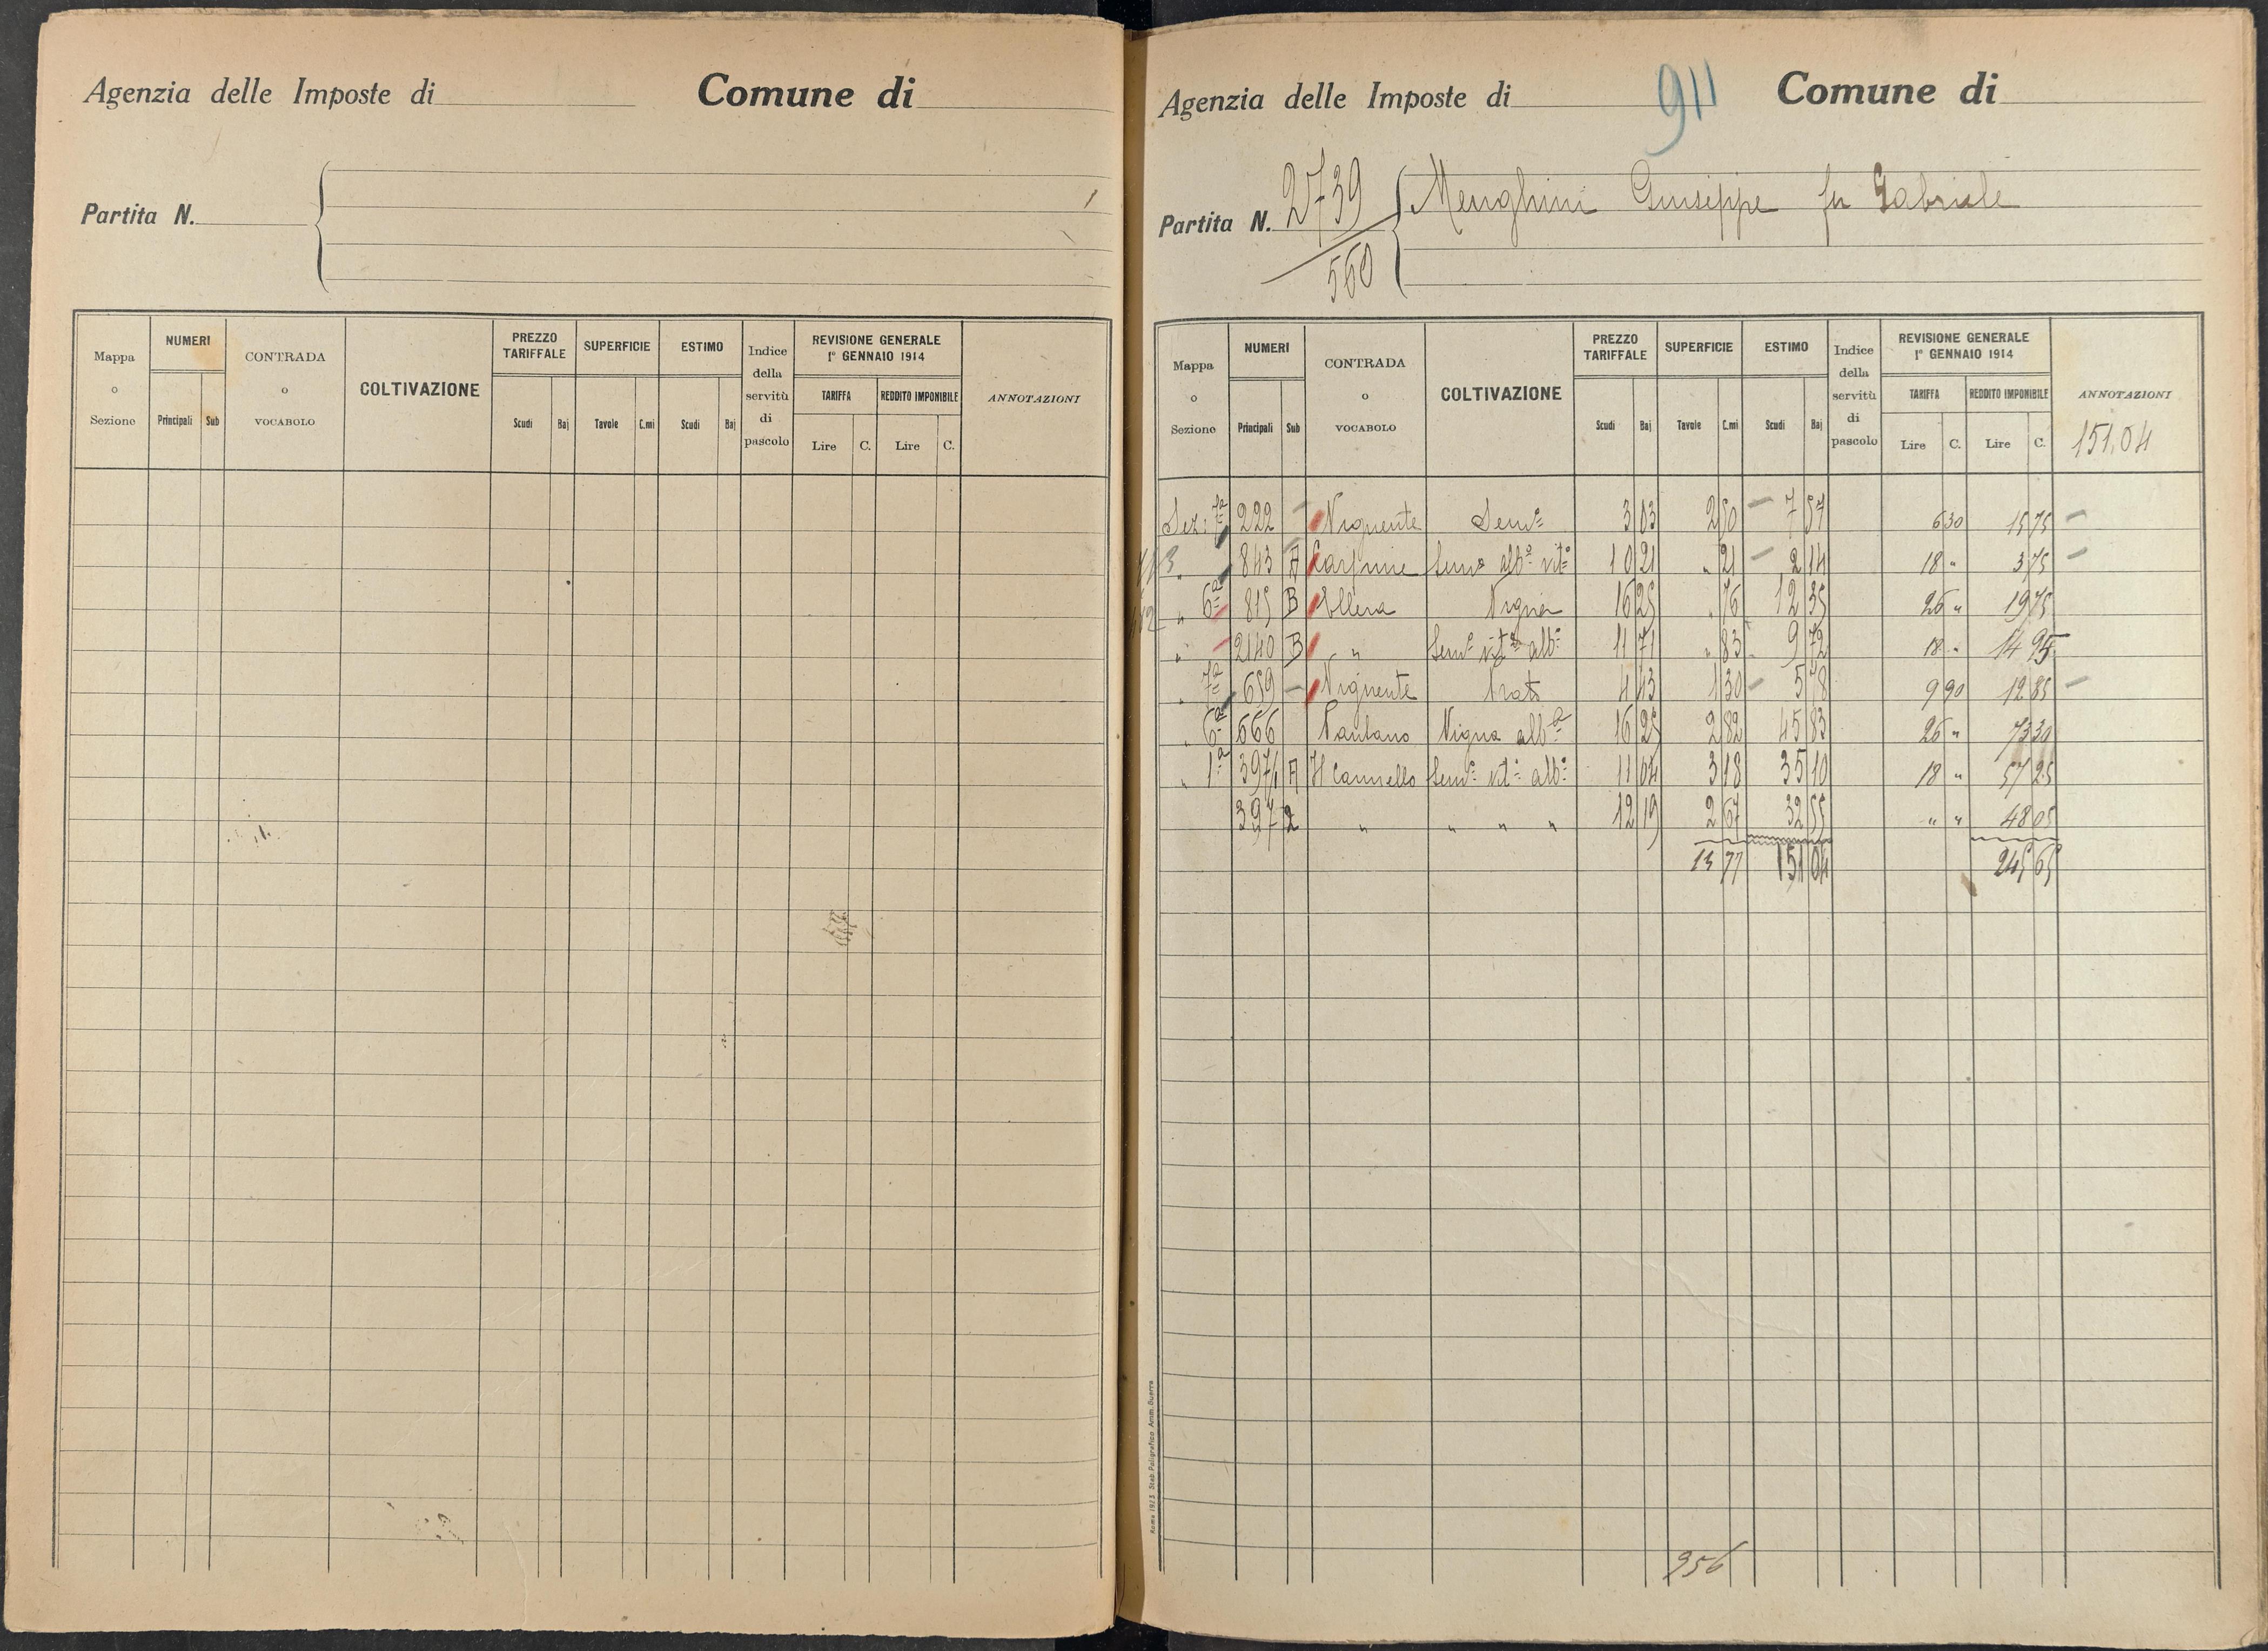 Agenzia delle Imposte di Comune di
Partita N.
Mappa o Sezione NUMERI Principali Sub CONTRADA o VOCABOLO COLTIVAZIONE PREZZO TARIFFALE Scudi Baj SUPERFICIE Tavole C.mi ESTIMO Scudi Baj Indice della servitù di pascolo REVISIONE GENERALE 1° GENNAIO 1914 TARIFFA Lire C. REDDITO IMPONIBILE Lire C. ANNOTAZIONI
Agenzia delle Imposte di 911 Comune di
Partita N. 2739 Menghini Giuseppe fu Gabriele
560
Mappa o Sezione NUMERI Principali Sub CONTRADA o VOCABOLO COLTIVAZIONE PREZZO TARIFFALE Scudi Baj SUPERFICIE Tavole C.mi ESTIMO Scudi Baj Indice della servitù di pascolo REVISIONE GENERALE 1° GENNAIO 1914 TARIFFA Lire C. REDDITO IMPONIBILE Lire C. ANNOTAZIONI
151.04
Sez: 7a 222 Semo 3 03 2 50 7 57 6 30 15 75
" 843 A Carpine Semo albo vito 10 21 " 21 2 14 18 " 3 75
" 6a 815 B Ellera Vigna 16 25 " 76 12 35 26 " 19 75
" 2140 B " Semo vito albo 11 71 " 83 9 72 18 " 14 95
" 7a 659 Prato 4 43 1 30 5 78 9 90 12 85
" 6a 666 Vigna alba 16 25 2 82 45 83 26 " 73 30
" 1a 397/1 A Il Cannello Semo vito albo 11 04 3 18 35 10 18 " 57 25
397 2 " " " " 12 19 2 67 32 55 " " 48 05
151 04 245 65
956
Roma 1923 Stab. Poligrafico Amm. Guerra